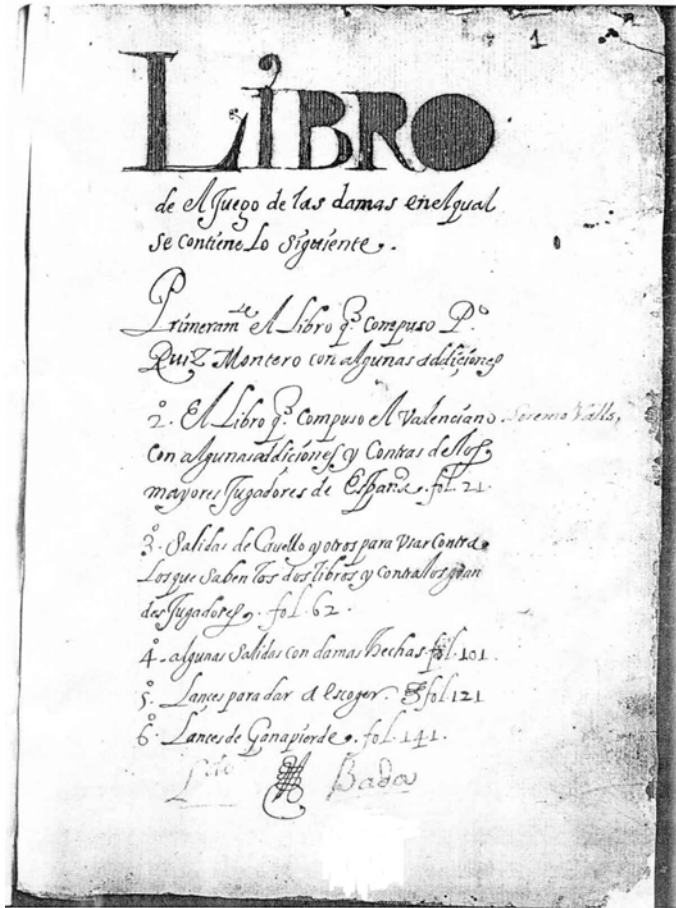 1
LIBRO
de el Juego de las damas en el qual
se contiene Lo siguiente.
Primeram.te el Libro q.e compuso P.o
RUIZ Montero con algunas addiçiones
2.o El Libro q.e compuso el valenciano Lorenço Valls,
con algunas addiciones y Contras de los
mayores Jugadores de España. fol. 21.
3.o Salidas de Cavello y otros para vsar contra
Los que saben los dos libros y contra los gran
des Jugadores. fol. 62.
4.o algunas salidas con damas hechas fol. 101.
5.o Lançes para dar a escoger. fol. 121
6.o Lançes de Ganapierde. fol. 141.
Bada